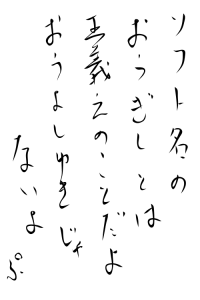 ソフト名の
おうぎしとは
王義之のことだよ
おうよしゆきじゃ
ないよ
ぷ